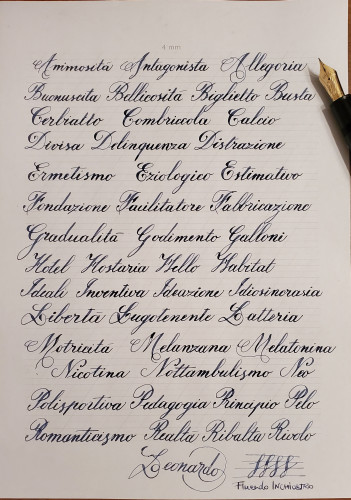 4 mm
Animosità Antagonista Allegoria
Buonuscita Bellicosità Biglietto Busta
Cerbiatto Combriccola Calcio
Divisa Delinquenza Distrazione
Ermetismo Eziologico Estimativo
Fondazione Facilitatore Fabbricazione
Gradualità Godimento Galloni
Hotel Hostaria Hello Habitat
Ideali Inventiva Ideazione Idiosincrasia
Libertà Luogotenente Latteria
Motricità Melanzana Melatonina
Nicotina Nottambulismo Neo
Polisportiva Pedagogia Principio Pelo
Romanticismo Realtà Ribalta Rivolo
Leonardo
Fluendo INCHIOSTRO